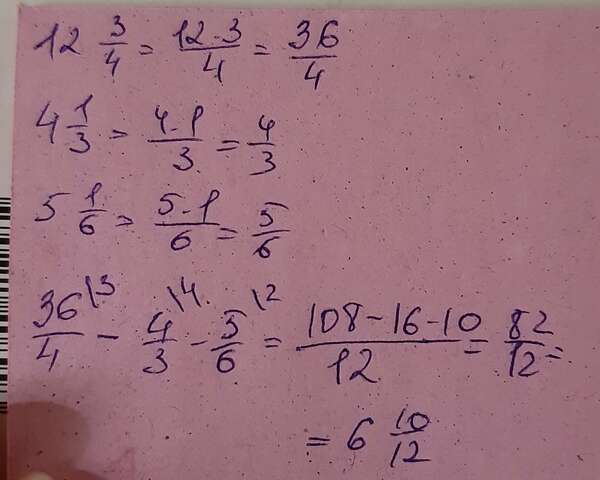 12 3/4 = 12·3/4 = 36/4
4 1/3 = 4·1/3 = 4/3
5 1/6 = 5·1/6 = 5/6
36/4 \3 - 4/3 \4 - 5/6 \2 = 108-16-10/12 = 82/12 =
= 6 10/12